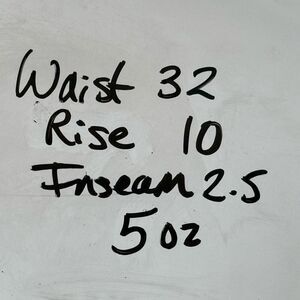 Waist 32
Rise 10
Inseam 2.5
5 oz